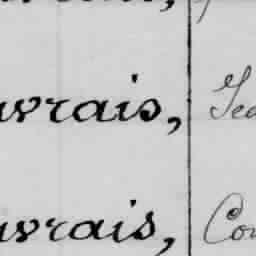 uvrais, Jea
uvrais, Cou